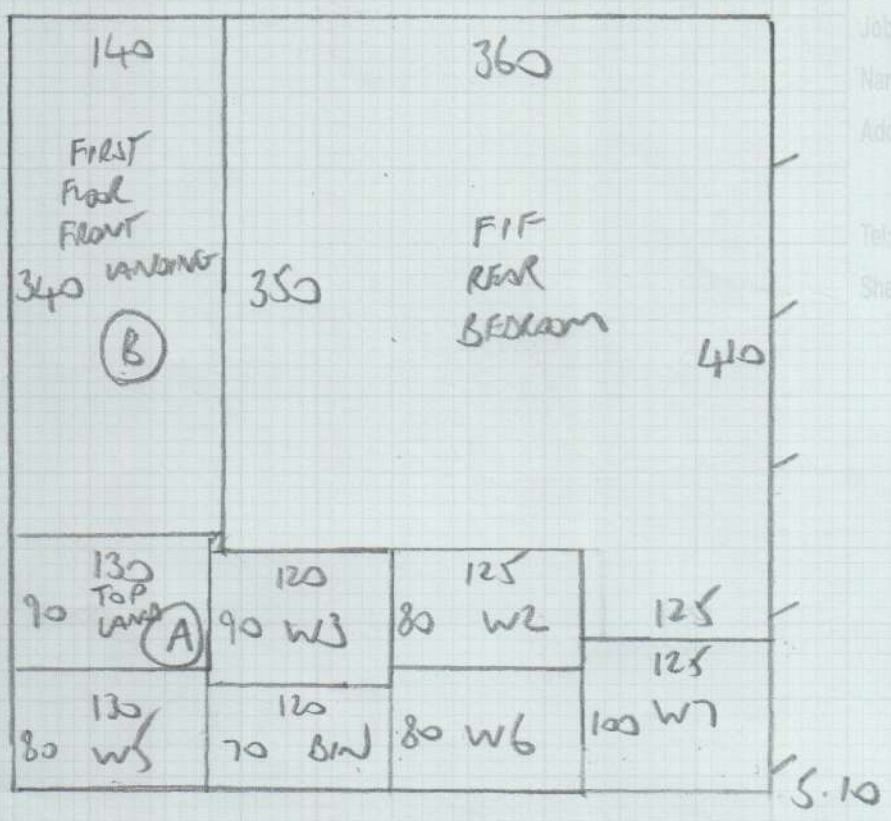 140
360
FIRST
FLOOR
FRONT
LANDING
340
B
350
F/F
REAR
BEDROOM
410
130
TOP
LAND
90
A
120
90 W3
125
80 W2
125
130
80 W5
120
70 BIN
80 W6
125
100 W7
5.10
Job
Nam
Add
Tel
Sha